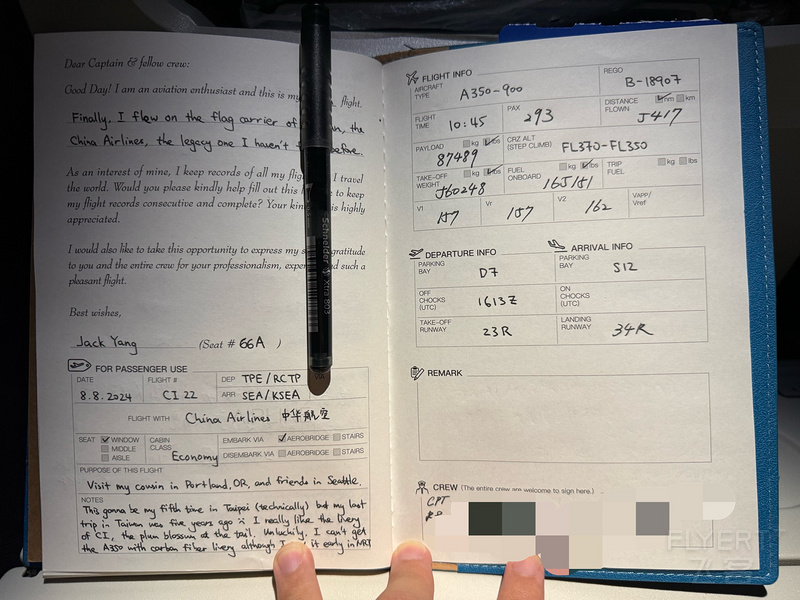 Dear Captain & fellow crew:
Good Day! I am an aviation enthusiast and this is my flight.
Finally, I flew on the flag carrier of the
China Airlines, the legacy one I haven't before.
As an interest of mine, I keep records of all my I travel
the world. Would you please kindly help fill out this to keep
my flight records consecutive and complete? Your is highly
appreciated.
I would also like to take this opportunity to express my gratitude
to you and the entire crew for your professionalism, such a
pleasant flight.
Best wishes,
Jack Yang (Seat # 66A )
FOR PASSENGER USE
DATE FLIGHT # DEP TPE/RCTP
8.8.2024 CI 22 ARR SEA/KSEA
FLIGHT WITH China Airlines 中华航空
SEAT WINDOW MIDDLE AISLE
CABIN CLASS Economy
EMBARK VIA AEROBRIDGE STAIRS
DISEMBARK VIA AEROBRIDGE STAIRS
PURPOSE OF THIS FLIGHT
Visit my cousin in Portland, OR, and friends in Seattle.
NOTES
This gonna be my fifth time in Taipei (technically) but my last
trip in Taiwan was five years ago I really like the livery
of CI, the plum blossum at the tail. Unluckily, I can't get
the A350 with carbon fiber livery although I it early in NRT
Schneider Xtra 803
FLIGHT INFO
AIRCRAFT TYPE A350-900
REGO B-18907
FLIGHT TIME 10:45
PAX 293
DISTANCE FLOWN nm km 5417
PAYLOAD kg lbs 87489
CRZ ALT (STEP CLIMB) FL370-FL350
TAKE-OFF WEIGHT kg lbs 560248
FUEL ONBOARD kg lbs 165181
TRIP FUEL kg lbs
V1 157
Vr 157
V2 162
VAPP/Vref
DEPARTURE INFO
PARKING BAY D7
OFF CHOCKS (UTC) 1613Z
TAKE-OFF RUNWAY 23R
ARRIVAL INFO
PARKING BAY S12
ON CHOCKS (UTC)
LANDING RUNWAY 34R
REMARK
CREW (The entire crew are welcome to sign here.)
CPT
FLYERT